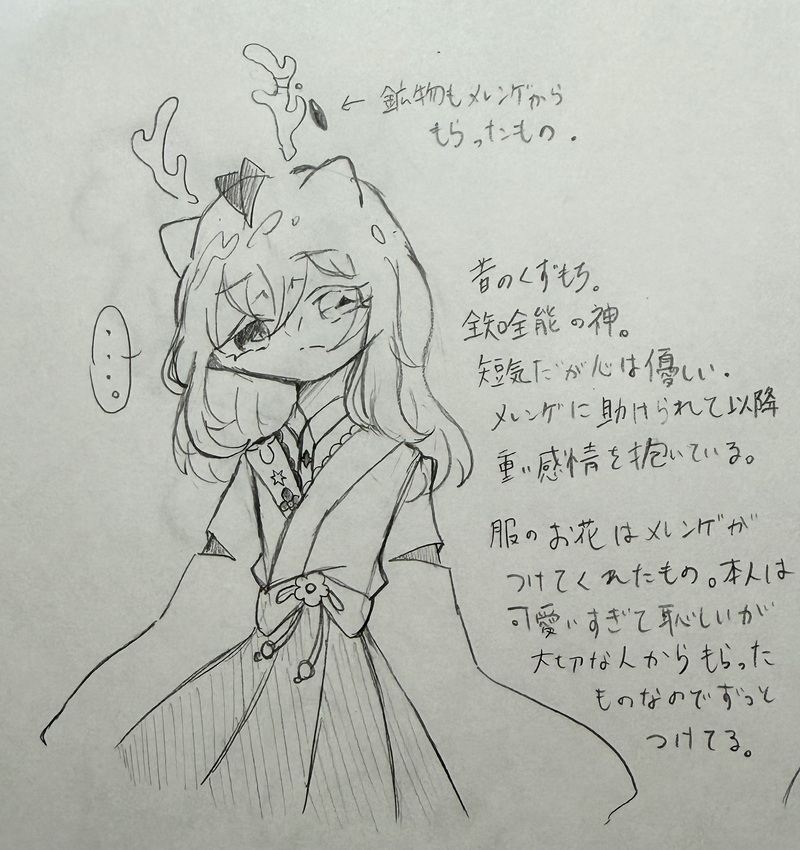 鉱物もメレンゲから
もらったもの.
昔のくずもち。
全知全能の神。
短気だが心は優しい.
メレンゲに助けられて以降
重い感情を抱いている。
服のお花はメレンゲが
つけてくれたもの。本人は
可愛いすぎて恥しいが
大切な人からもらった
ものなのでずっと
つけてる。